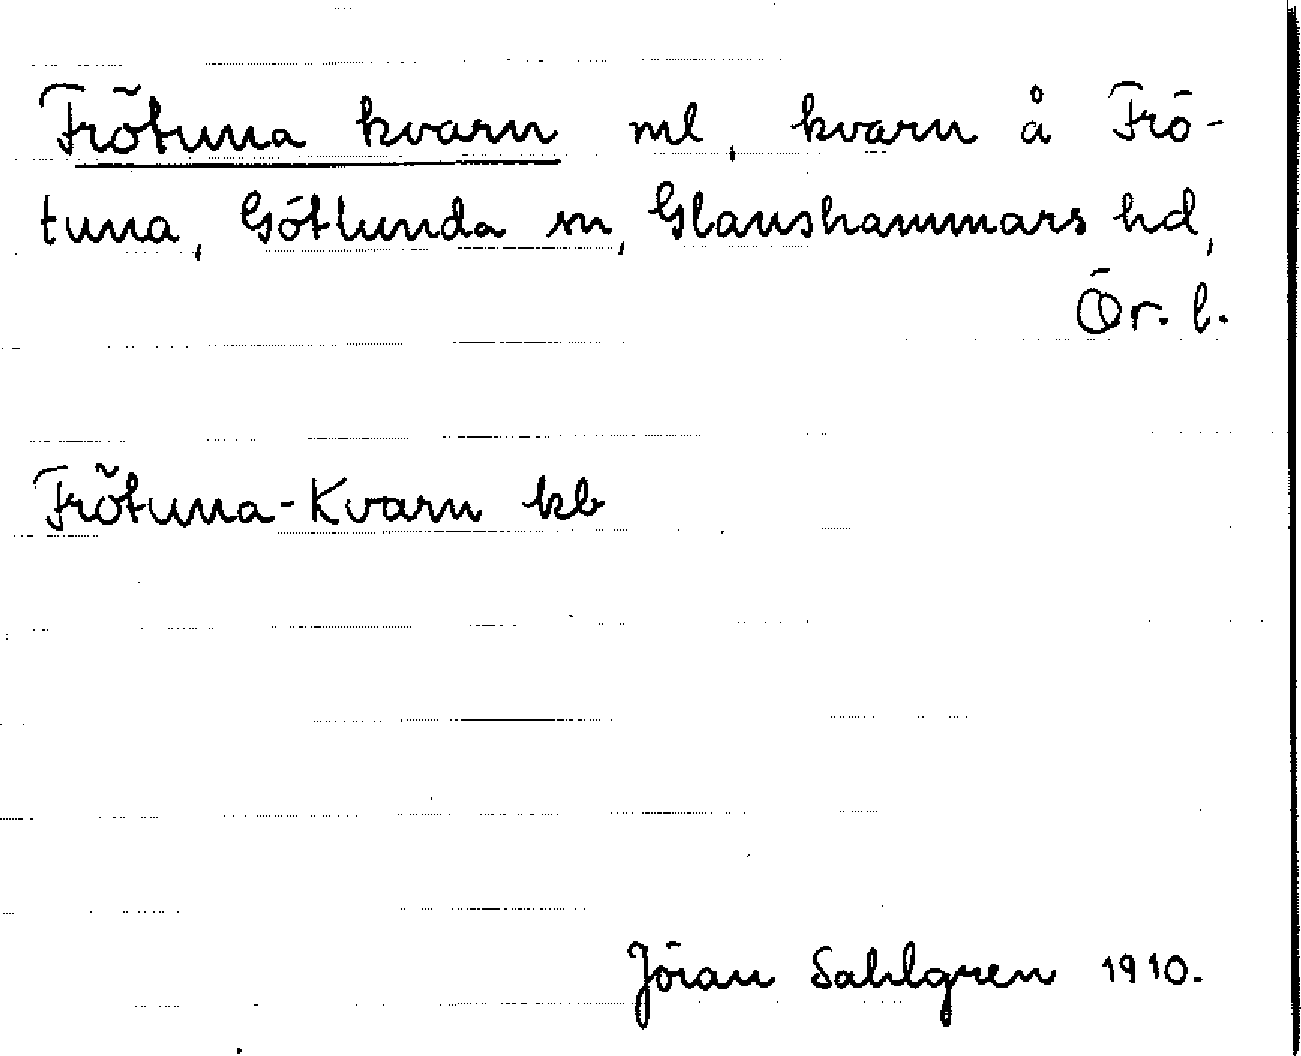 Frötuna kvarn ml, kvarn å Frö-
tuna, Götlunda sn, Glanshammars hd,
Ör. l.
Frötuna-Kvarn kb
Jöran Sahlgren 1910.